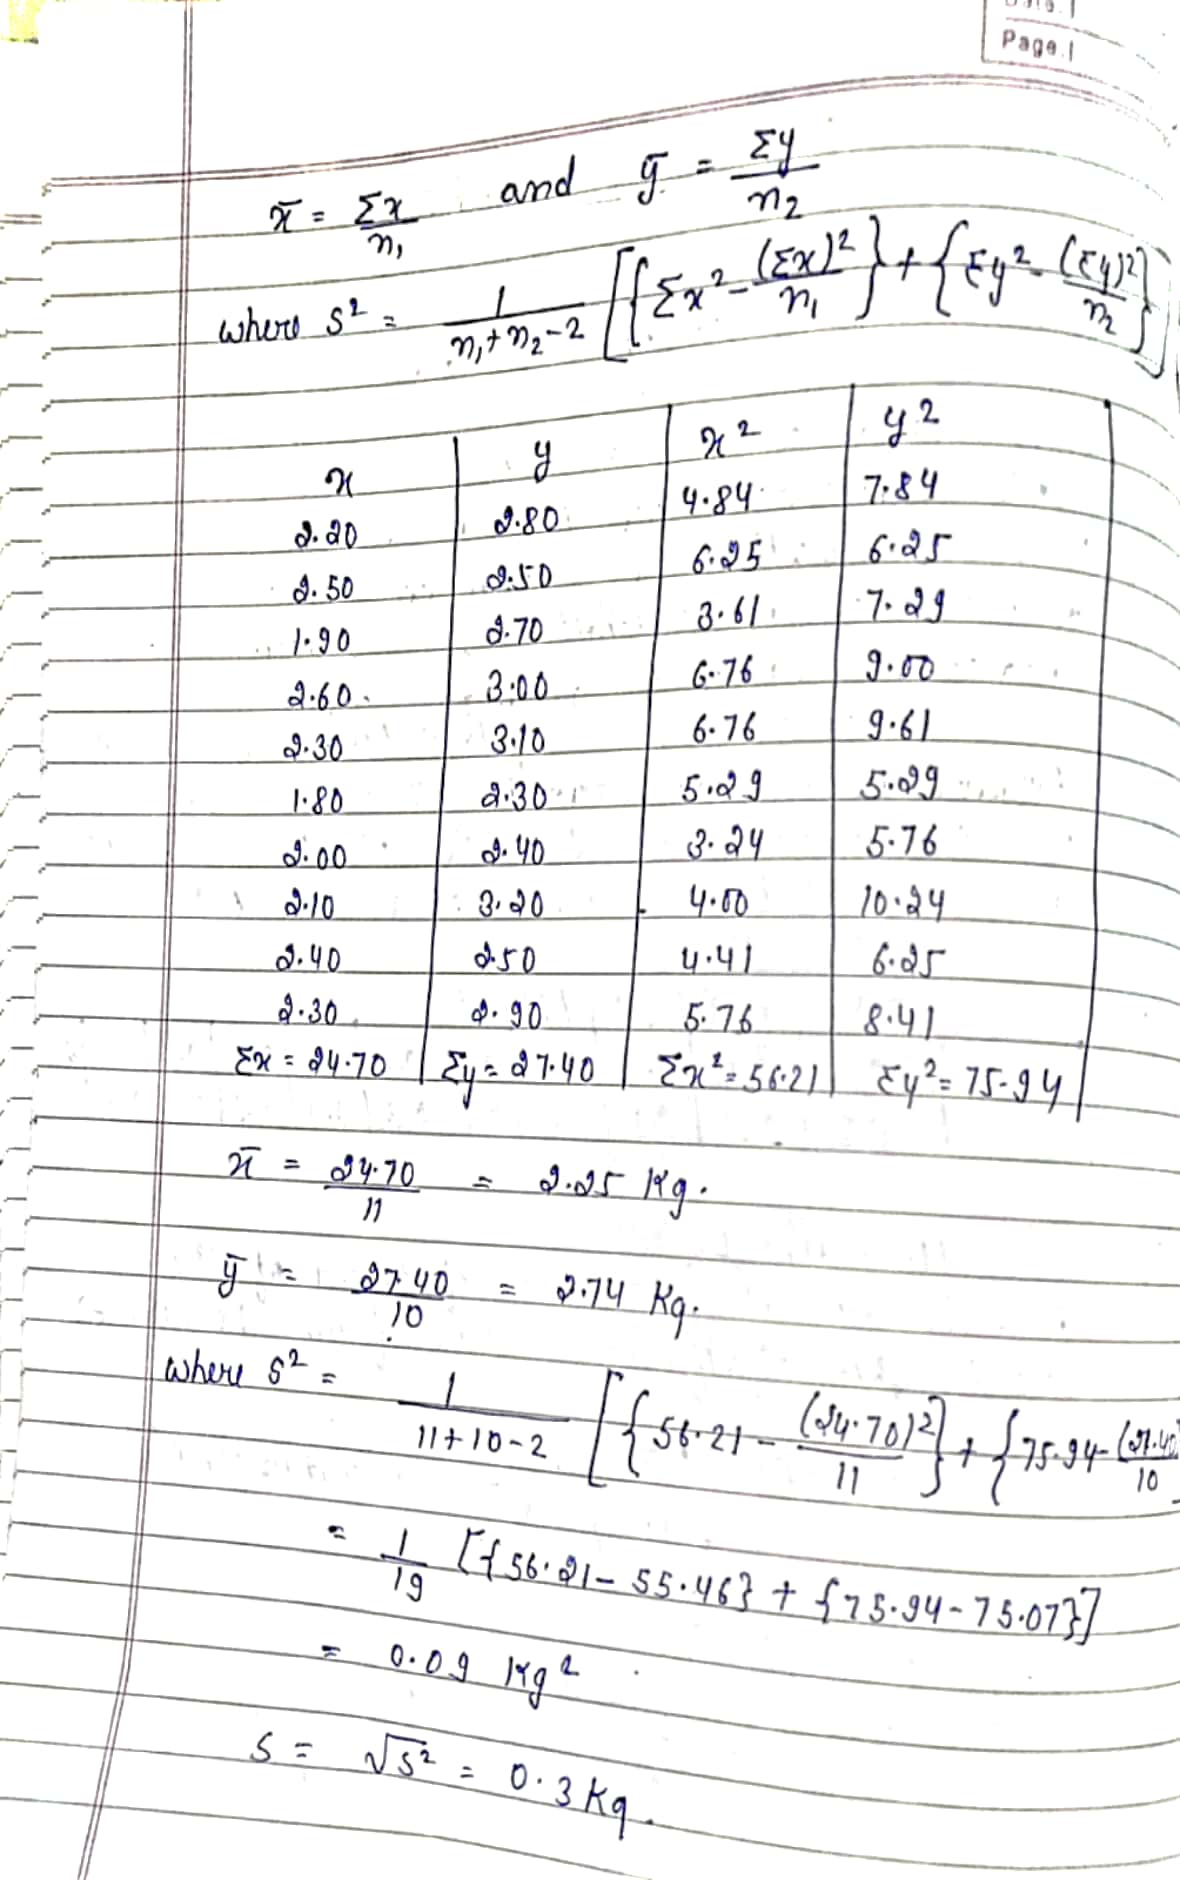 Page.
x̄ = Σx/n₁ and ȳ = Σy/n₂
where s² = 1/(n₁+n₂-2) [{Σx² - (Σx)²/n₁} + {Σy² - (Σy)²/n₂}]
x y x² y²
2.20 2.80 4.84 7.84
2.50 2.50 6.25 6.25
1.90 2.70 3.61 7.29
2.60 3.00 6.76 9.00
2.30 3.10 6.76 9.61
1.80 2.30 5.29 5.29
2.00 2.40 3.24 5.76
2.10 3.20 4.00 10.24
2.40 2.50 4.41 6.25
2.30 2.90 5.76 8.41
Σx = 24.70 Σy = 27.40 Σx² = 56.21 Σy² = 75.94
x̄ = 24.70/11 = 2.25 Kg.
ȳ = 27.40/10 = 2.74 Kg.
where s² = 1/(11+10-2) [{56.21 - (24.70)²/11} + {75.94 - (27.40/10
= 1/19 [{56.21 - 55.46} + {75.94 - 75.07}]
= 0.09 Kg²
s = √s² = 0.3 Kg.